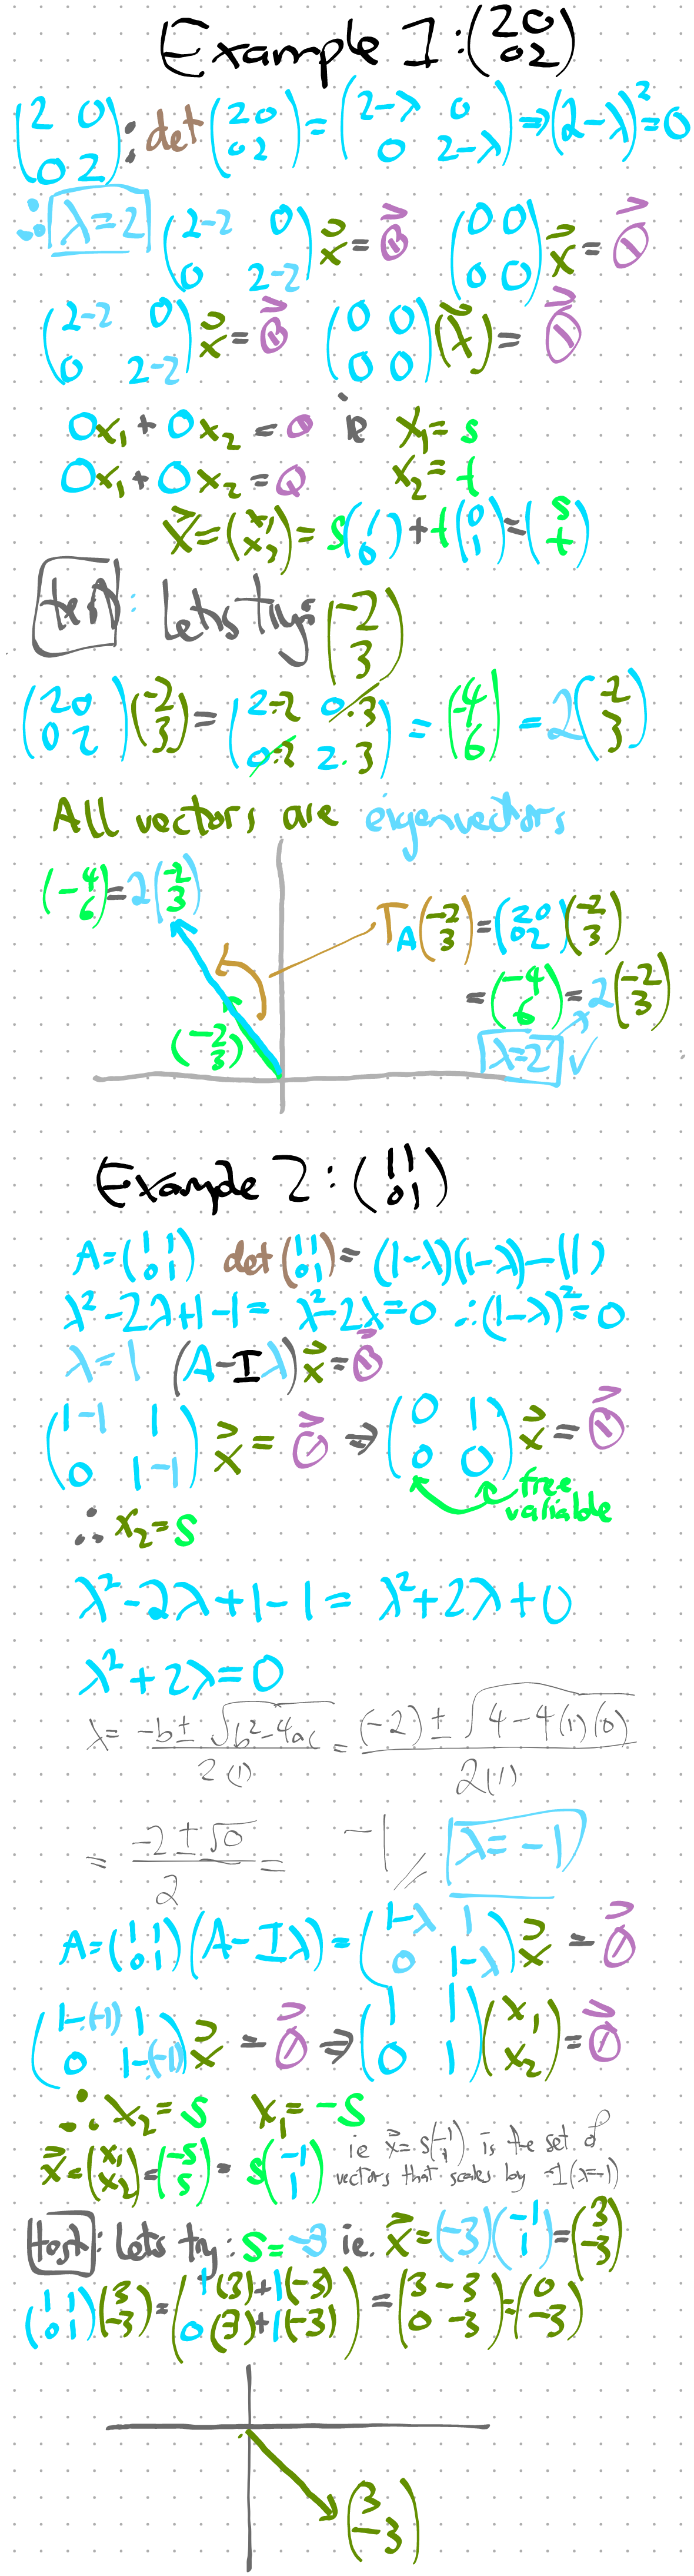 Example 1: (2 0 / 0 2)
(2 0 / 0 2): det (2 0 / 0 2) = (2-λ 0 / 0 2-λ) ⇒ (2-λ)² = 0
∴ λ=2 (2-2 0 / 0 2-2) x⃗ = 0⃗ (0 0 / 0 0) x⃗ = 0⃗
(2-2 0 / 0 2-2) x⃗ = 0⃗ (0 0 / 0 0)(x⃗) = 0⃗
0x₁ + 0x₂ = 0 ie x₁ = s
0x₁ + 0x₂ = 0 x₂ = t
x⃗ = (x₁ / x₂) = s(1 / 0) + t(0 / 1) = (s / t)
test: Lets try: (-2 / 3)
(2 0 / 0 2)(-2 / 3) = (2·-2 0·3 / 0·3 2·3) = (-4 / 6) = 2(-2 / 3)
All vectors are eigenvectors
(-4 / 6) = 2(-2 / 3)
T_A(-2 / 3) = (2 0 / 0 2)(-2 / 3)
= (-4 / 6) = 2(-2 / 3)
(-2 / 3)
λ=2 ✓
Example 2: (1 1 / 0 1)
A = (1 1 / 0 1) det (1 1 / 0 1) = (1-λ)(1-λ) - (1)
λ² - 2λ + 1 - 1 = λ² - 2λ = 0 ∴ (1-λ)² = 0
λ = 1 (A - Iλ) x⃗ = 0⃗
(1-1 1 / 0 1-1) x⃗ = 0⃗ ⇒ (0 1 / 0 0) x⃗ = 0⃗
free
variable
∴ x₂ = s
λ² - 2λ + 1 - 1 = λ² + 2λ + 0
λ² + 2λ = 0
λ = (-b ± √(b² - 4ac)) / 2(1) = ((-2) ± √(4 - 4(1)(0))) / 2(1)
= (-2 ± √0) / 2 = -1 // λ = -1
A = (1 1 / 0 1) (A - Iλ) = (1-λ 1 / 0 1-λ) x⃗ = 0⃗
(1-(-1) 1 / 0 1-(-1)) x⃗ = 0⃗ ⇒ (1 1 / 0 1)(x₁ / x₂) = 0⃗
∴ x₂ = s x₁ = -s
x⃗ = (x₁ / x₂) = (-s / s) = s(-1 / 1)
ie x⃗ = s(-1 / 1) is the set of
vectors that scales by -1 (λ=-1)
test: Lets try: s = -3 ie. x⃗ = (-3)(-1 / 1) = (3 / -3)
(1 1 / 0 1)(3 / -3) = (1(3)+1(-3) / 0(3)+1(-3)) = (3 - 3 / 0 - 3) = (0 / -3)
(3 / -3)